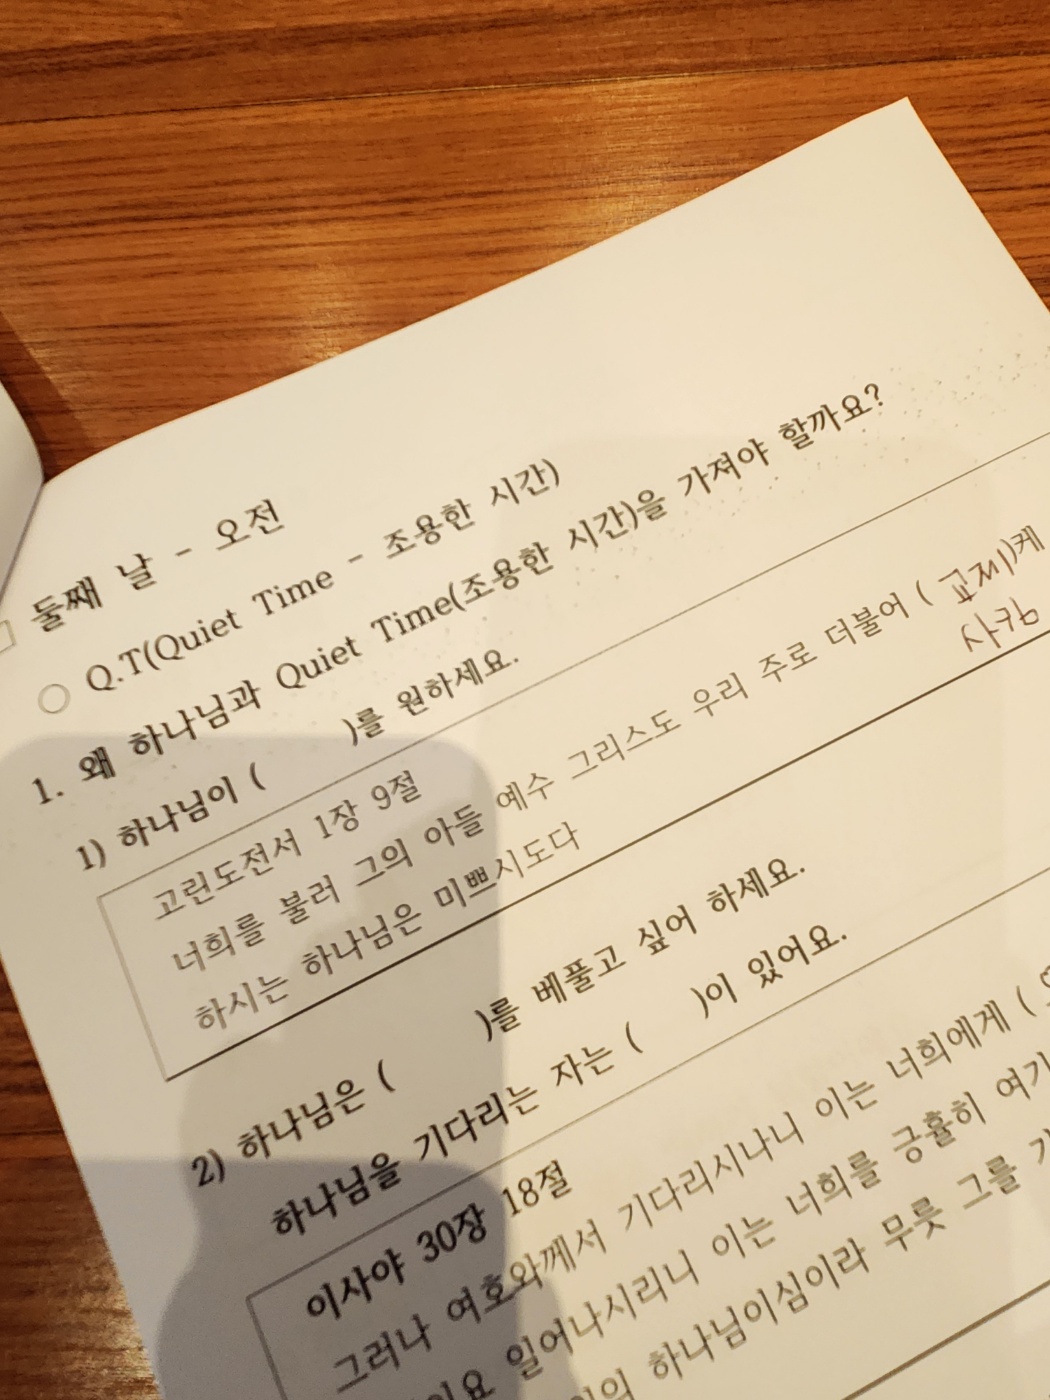 둘째 날 - 오전
Q.T(Quiet Time - 조용한 시간)
1. 왜 하나님과 Quiet Time(조용한 시간)을 가져야 할까요?
1) 하나님이 (          )를 원하세요.
고린도전서 1장 9절
너희를 불러 그의 아들 예수 그리스도 우리 주로 더불어 ( 교제)케
하시는 하나님은 미쁘시도다
2) 하나님은 (          )를 베풀고 싶어 하세요.
하나님을 기다리는 자는 (          )이 있어요.
이사야 30장 18절
그러나 여호와께서 기다리시나니 이는 너희에게 (
일어나시리니 이는 너희를 긍휼히
하나님이심이라 무릇 그를